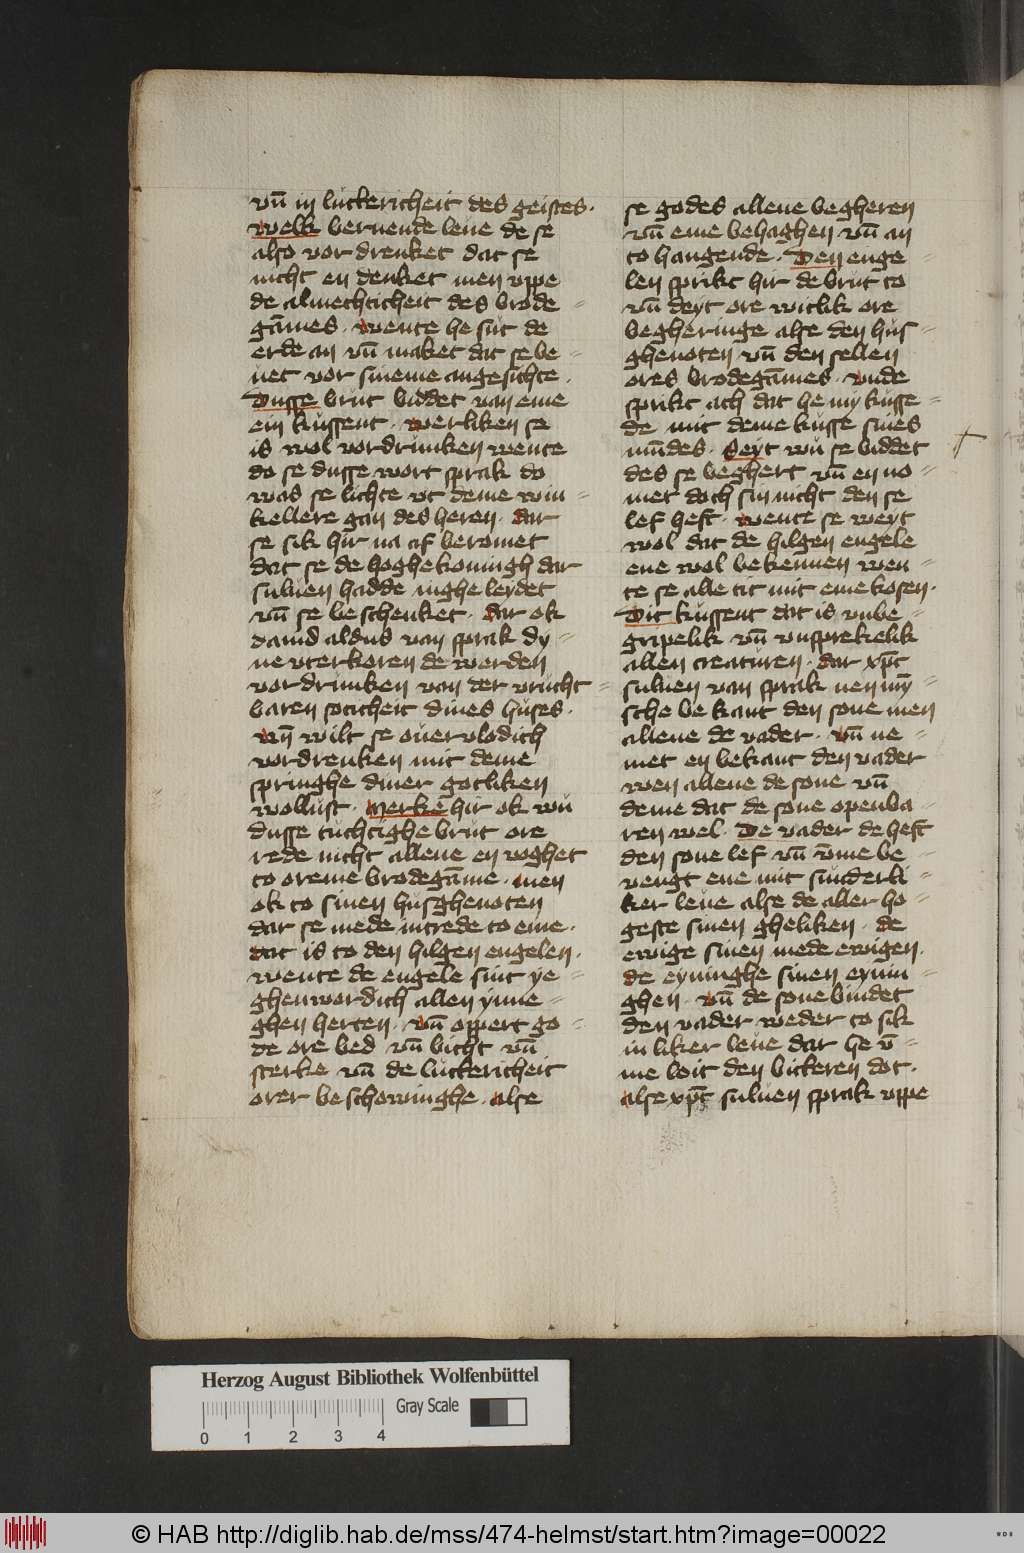 vn̄ in lutkericheit des geistes.
welk bernende leue de se
also vor drenket dat se
nicht en denket men vppe
de almechticheit des brode=
gāmes. wente he süt de
erde an vn̄ maket dat se be=
uet vor sineme angesichte.
Dusse brüt biddet van eme
ein küssent. werliken se
is wol vordrunken wente
do se dusse wort sprak do
was se lichte vt deme win=
kellere gan des heren. dar
se sik hir na af beromet
dat se de hoghe koningh dar
suluen hadde inghe leydet
vn̄ se be schenket. dar ok
dauid aldus van sprak dy=
ne vterkoren de werden
vordrunken van der vrucht=
baren soticheit dines huses.
vn̄ wilt se ouervlodich
vordrenken mit deme
springhe diner gotliken
wollust. Merke hir ok wü
dusse tüchtighe brut ore
rede nicht allene en voghet
to oreme brodegāme. men
ok to sinen husghenoten
dar se mede intrede to eme.
dat is to den hilgen engelen.
wente de engele sint ye=
ghenwordich allen ynne=
ghen herten. vn̄ oppert go=
de ore bed vn̄ bicht vn̄
sterke vn̄ de lutkericheit
orer beschowinghe. alse
se godes allene begheren
vn̄ eme behaghen vn̄ an
to hangende. Den enge=
len sprikt hir de brut to
vn̄ deyt ore witlik ore
begheringe alse den hus=
ghenoten vn̄ den sellen
ores brodegāmes. vnde
sprikt ach dat he my küsse=
de mit deme küsse sines
mūdes. Seyt wü se biddet
des se beghert vn̄ en no=
met doch sin nicht den se
lef heft. wente se weyt
wol dat de hilgen engele
ene wol bekennen wen=
te se alle tit mit eme kosen.
Dit küssent dat is vnbe=
gripelik vn̄ vnsprekelik
allen creaturen. dar xp̄t
suluen van sprak nen mȳ=
sche be kant den sone men
allene de vader. vn̄ ne=
met en bekant den vader
wen allene de sone vn̄
deme dat de sone openba=
ren wel. De vader de heft
den sone lef vn̄ v̄me be=
vengt ene mit sunderli=
ker leue alse de aller ho=
geste sinen gheliken. de
ewige sinen mede ewigen.
de eyninghe sinen eynin=
ghen. vn̄ de sone bindet
den vader weder to sik
in liker leue dar he v̄=
me leit den bitteren dot.
alse xp̄t suluen sprak vppe
Herzog August Bibliothek Wolfenbüttel
Gray Scale
0 1 2 3 4
© HAB http://diglib.hab.de/mss/474-helmst/start.htm?image=00022